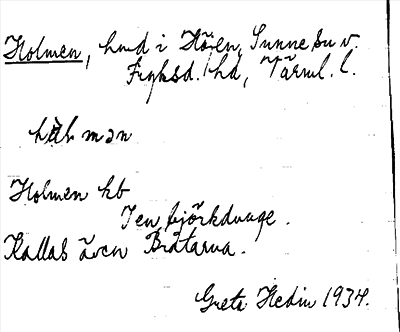 Holmen, hmd i Höjen, Sunne sn v.
Fryksd. hd, Värml. l.
hòlmən
Holmen kb
I en björkdunge.
Kallas även Bråtarna.
Greta Hedin 1934.